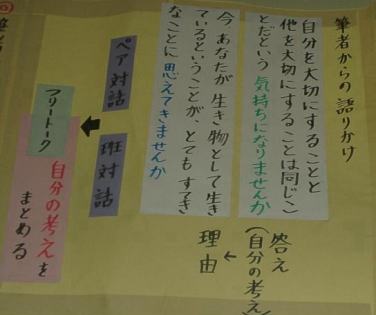 筆者からの語りかけ
自分を大切にすることと
他を大切にすることは同じこ
とだという気持ちになりませんか
答え
(自分の考え)
今あなたが生き物として生き
ているということが、とてもすてき
なことに思えてきませんか
理由
ペア対話
班対話
フリートーク
自分の考えを
まとめる